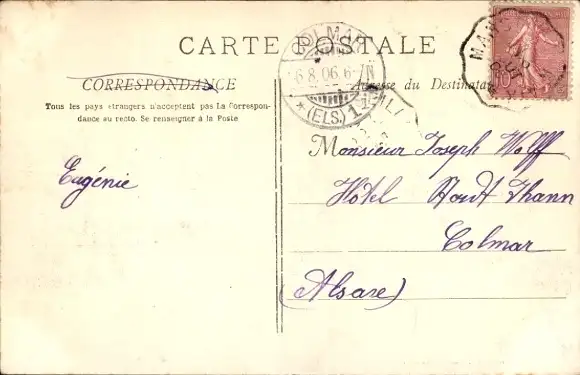 CARTE POSTALE
CORRESPONDANCE
Tous les pays étrangers n'acceptent pas la Correspon-
dance au recto. Se renseigner à la Poste
Eugénie
COLMAR
6.8.06.6-7N
* (ELS.) 1
Adresse du Destinata
Monsieur Joseph Wolff
Hôtel Thann
Colmar
(Alsace)